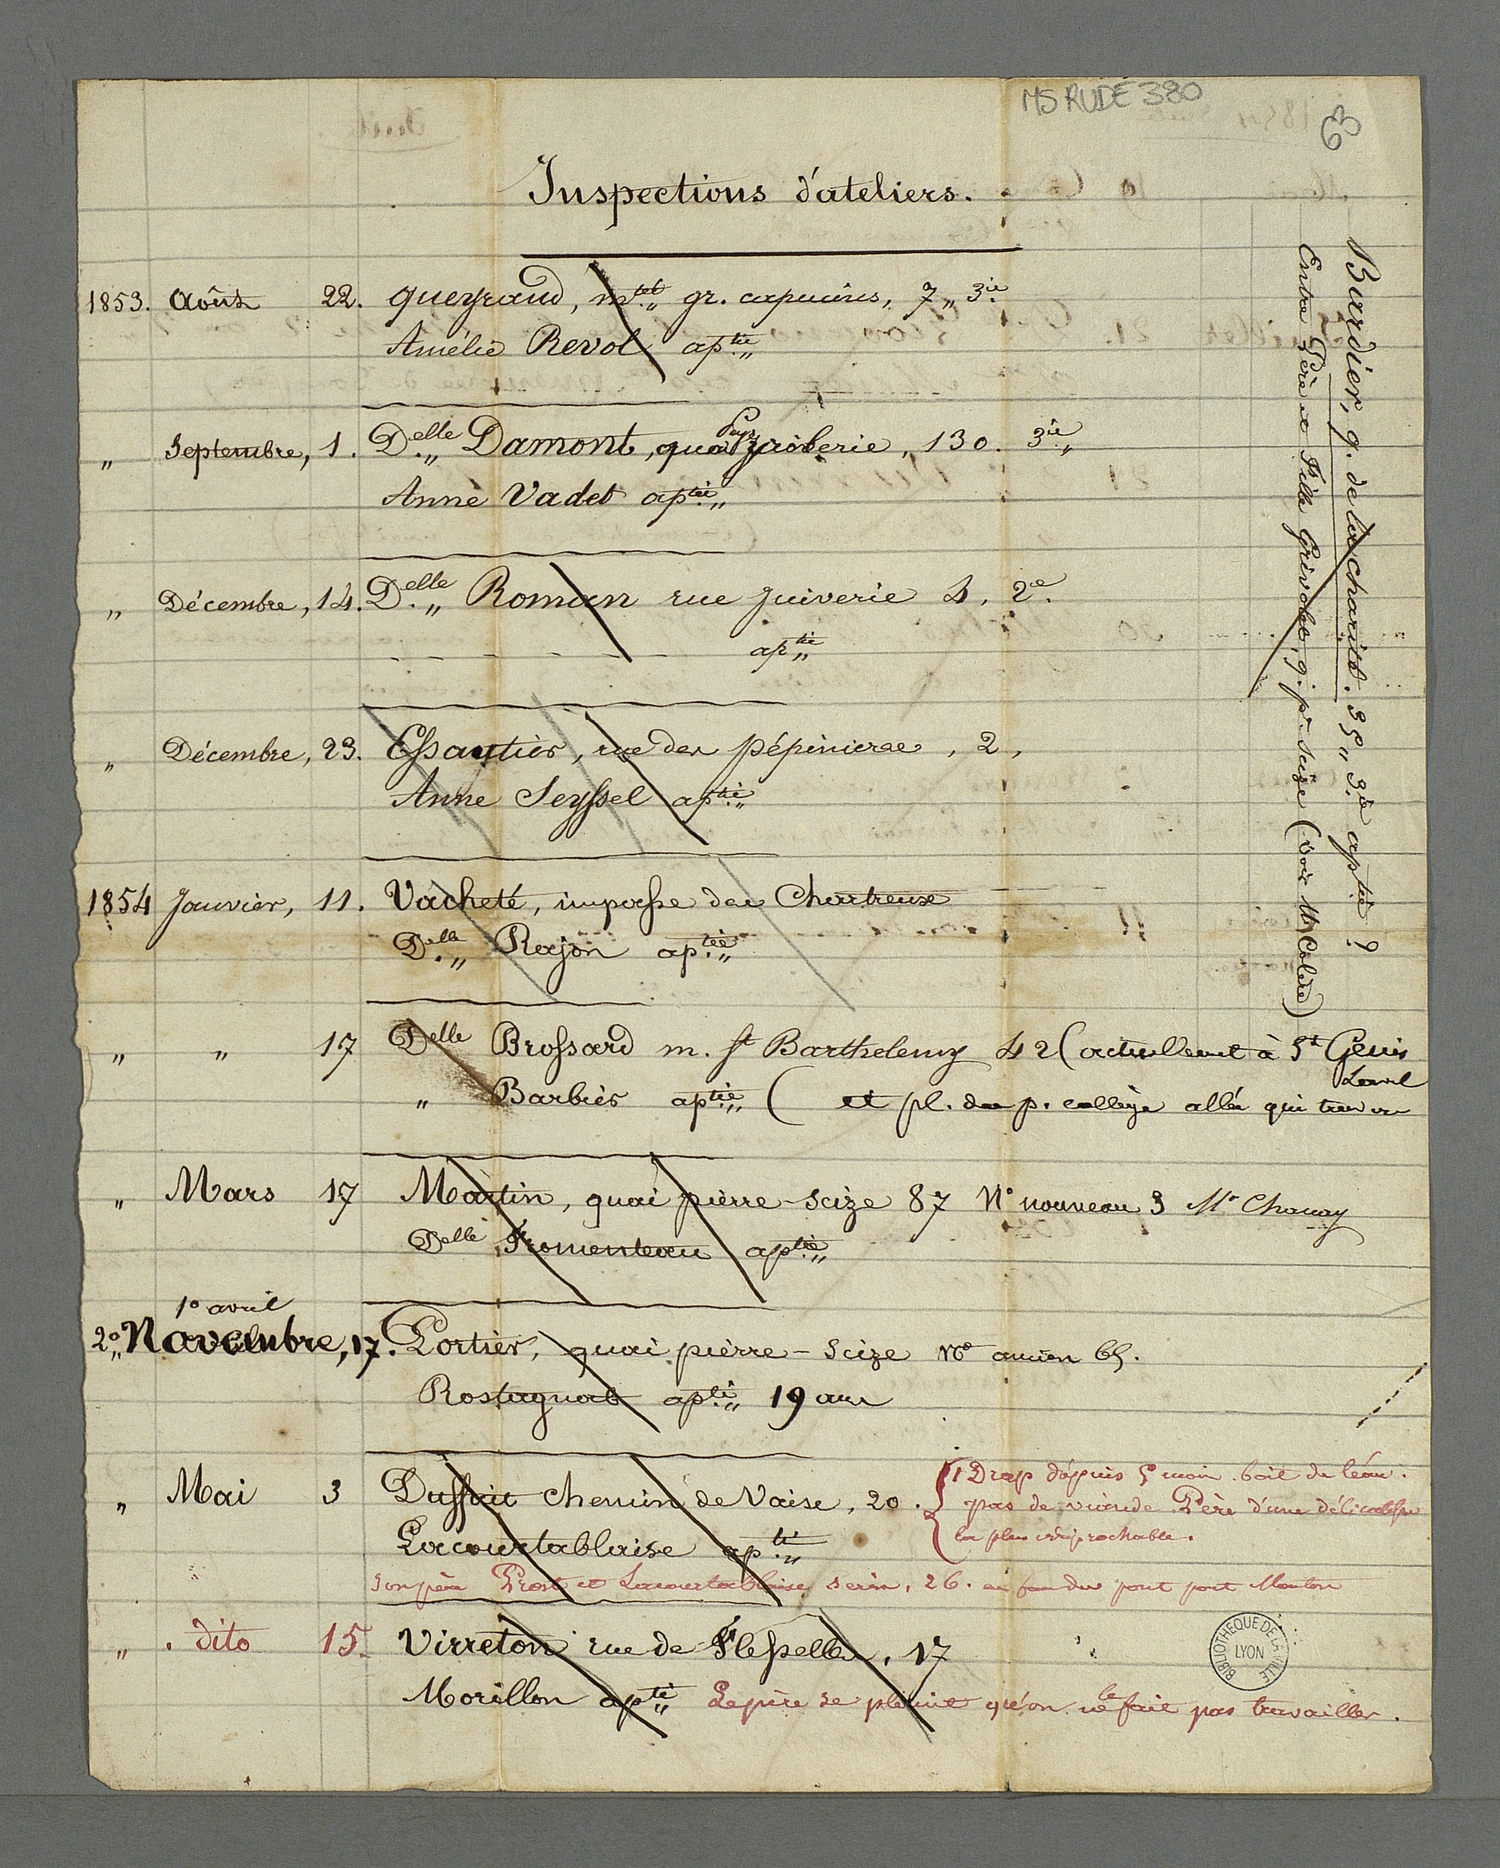 MS RUDE 380
63
Inspections d'ateliers.
1853. Août 22. Gueyraud, mtet„ gr. capucins, 7„ 3ie.
Amélie Revol aptie„
„ Septembre, 1. Delle„ Damont, quai Puyzroberie, 130. 3ie„
Anne Vadet aptie„
„ Décembre, 14. Delle„ Roman rue juiverie 4, 2e.
aptie„
„ Décembre, 23. Essautier, rue des pépinieres, 2,
Anne Seyssel aptie„
1854 Janvier, 11. Vacheté, impasse des Chartreux
Delle„ Rajon aptie„
„ „ 17 Delle Brossard m. St Barthelemy 42 (actuellement à St Genis
Laval
„ Barbier aptie„ ( et pl. du p. collège allée qui trav.
„ Mars 17 Martin, quai pierre-scize 87 No nouveau 3 Mr Chanay
Delle Fromenteau aptie„
1o avril
2o„ Novembre, 17. Portier, quai pierre-scize No ancien 65.
Rostagnat apti„ 19 ans
„ Mai 3 Duffait chemin de Vaise, 20. { 1 Drap depuis 5 mois. boit de l'eau.
pas de viande Père d'une délicatesse
la plus irréprochable.
Lacourtablaise apti„
son père Prost et Lacourtablaise serin, 26. en face du pont port Mouton
„ . dito 15. Virreton rue de Flesselles, 17
Morillon apti„ Le père se plaint qu'on ne le fait pas travailler.
Bardier, g. de la charité. 35„ 3ie aptie ?
Entre Père et Fille Grivolet, q. pre scize (voir Mr Colère)
BIBLIOTHEQUE DE LA VILLE
LYON